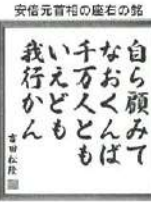 安倍元首相の座右の銘
自ら顧みて
なおくんば
千万人とも
いえども
我行かん
吉田松陰